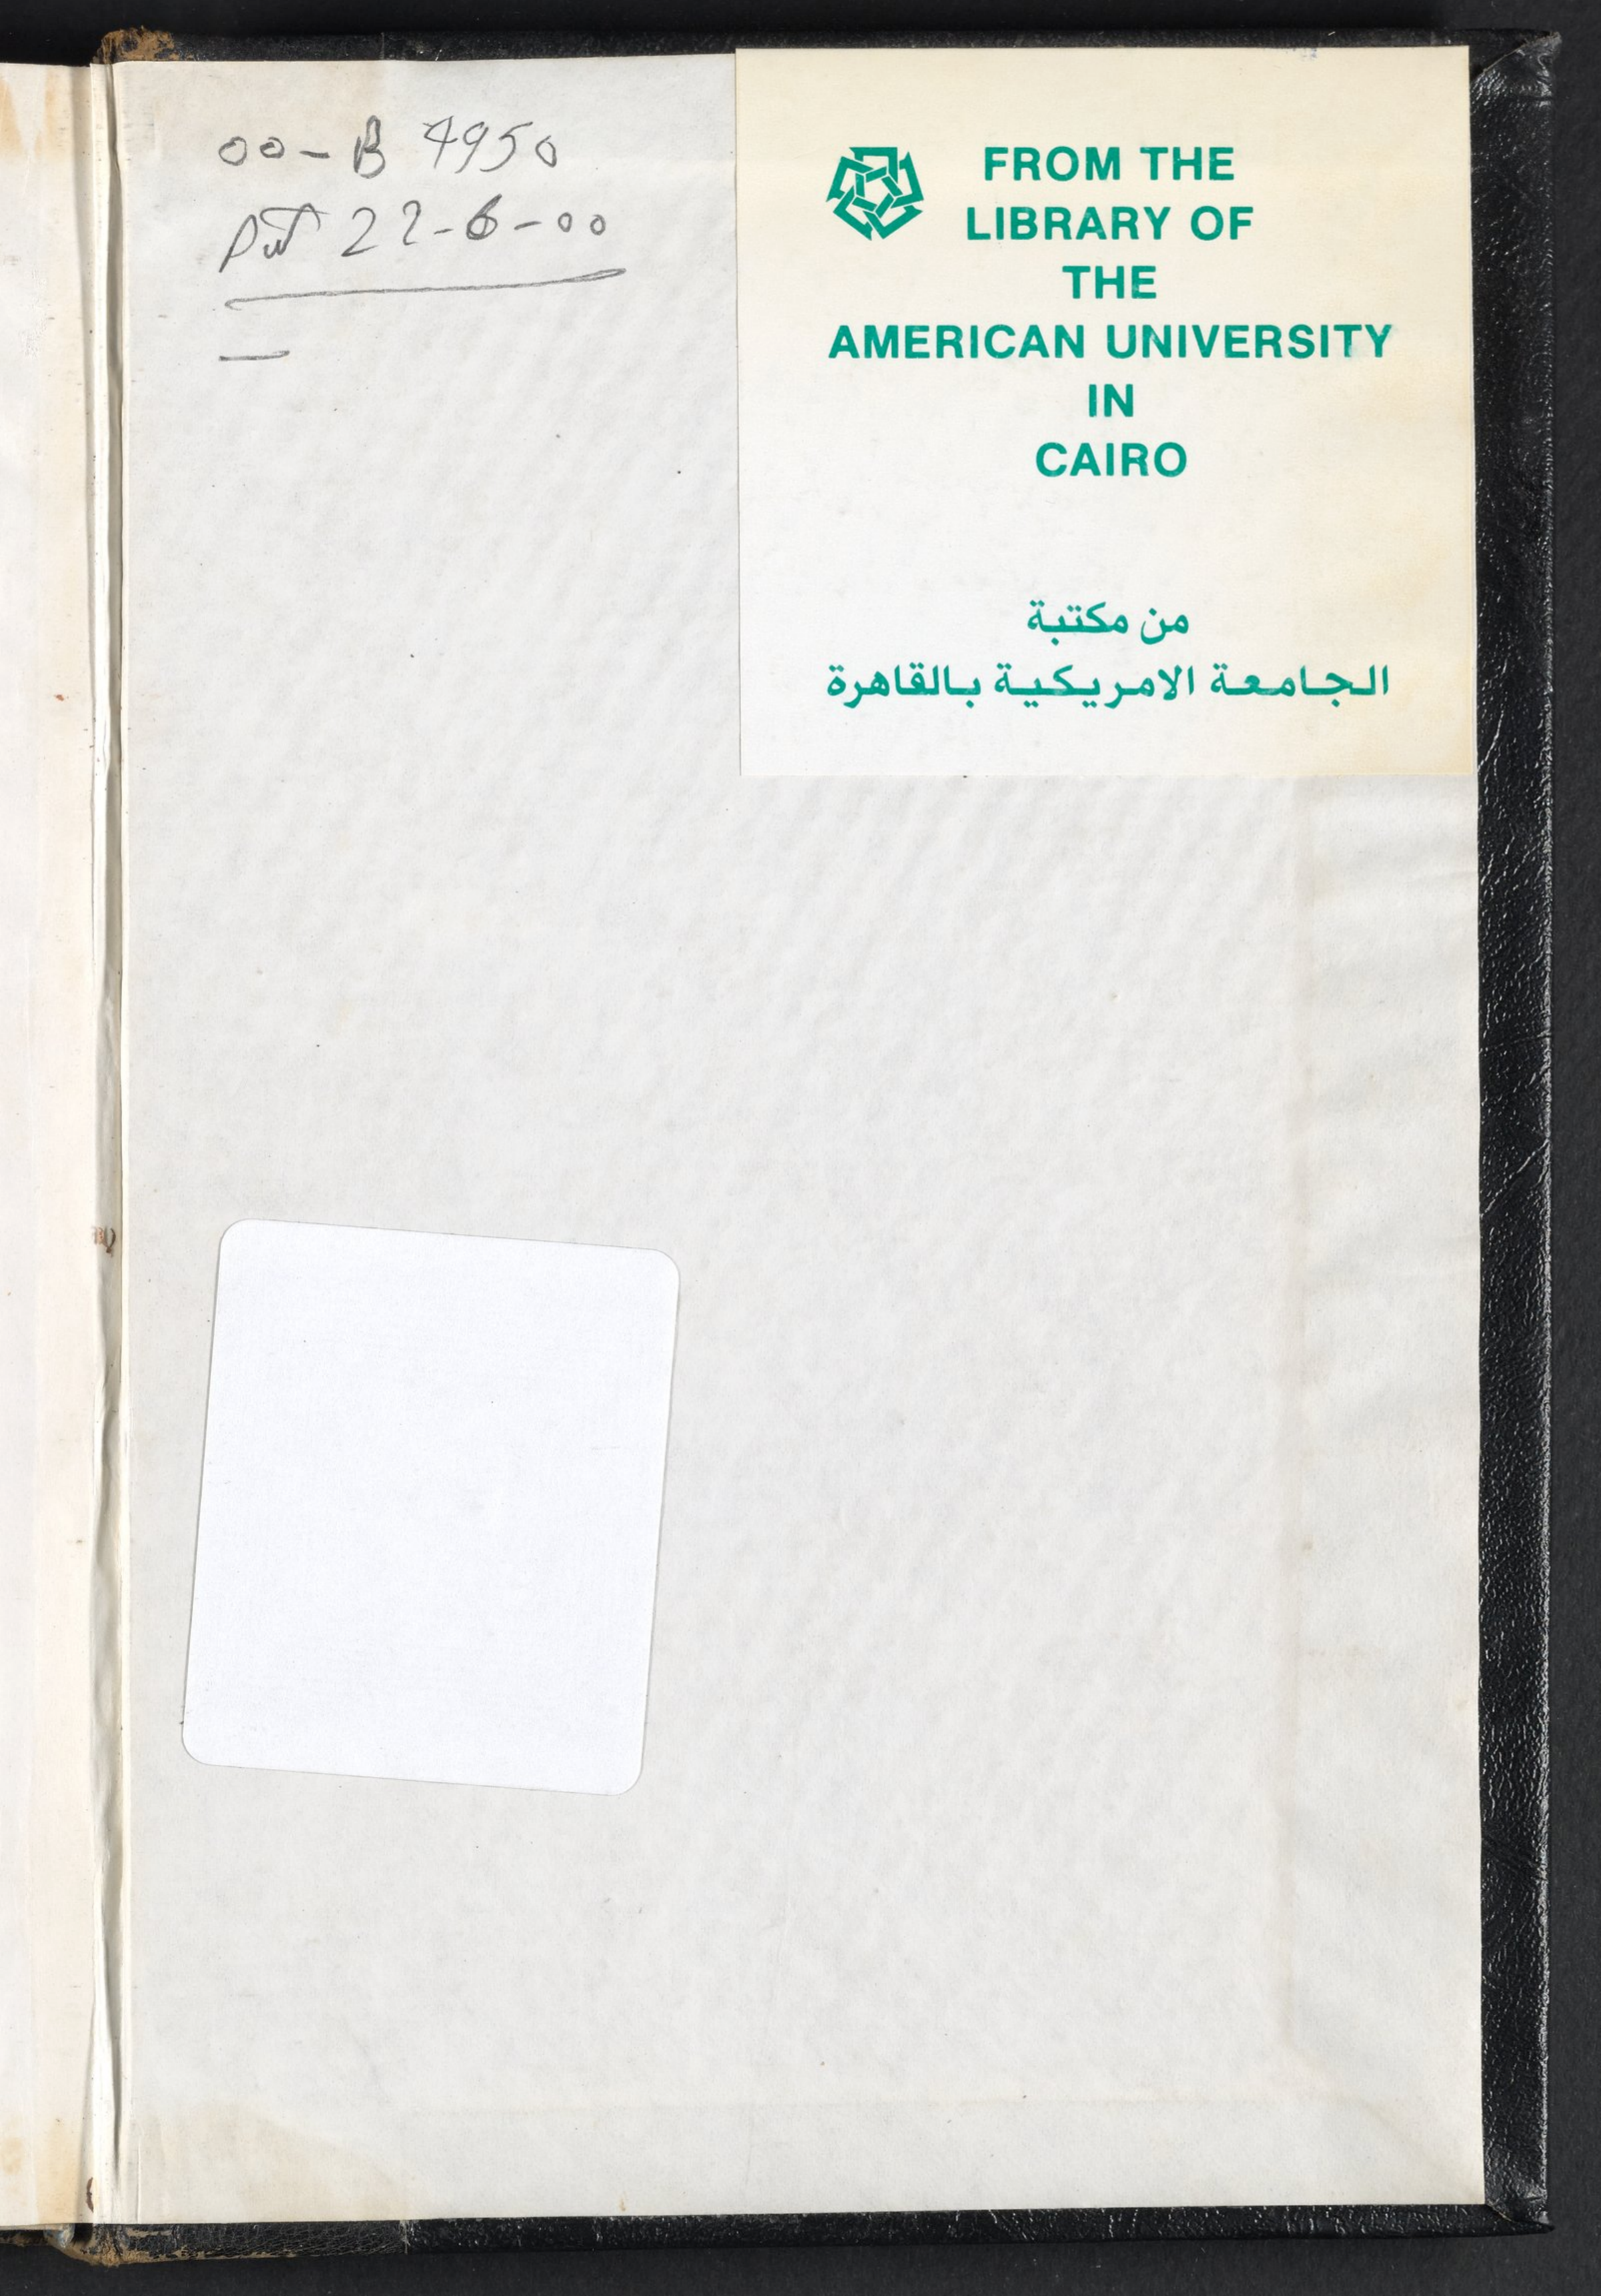 00-B 4950
22-6-00
FROM THE
LIBRARY OF
THE
AMERICAN UNIVERSITY
IN
CAIRO
من مكتبة
الجامعة الامريكية بالقاهرة